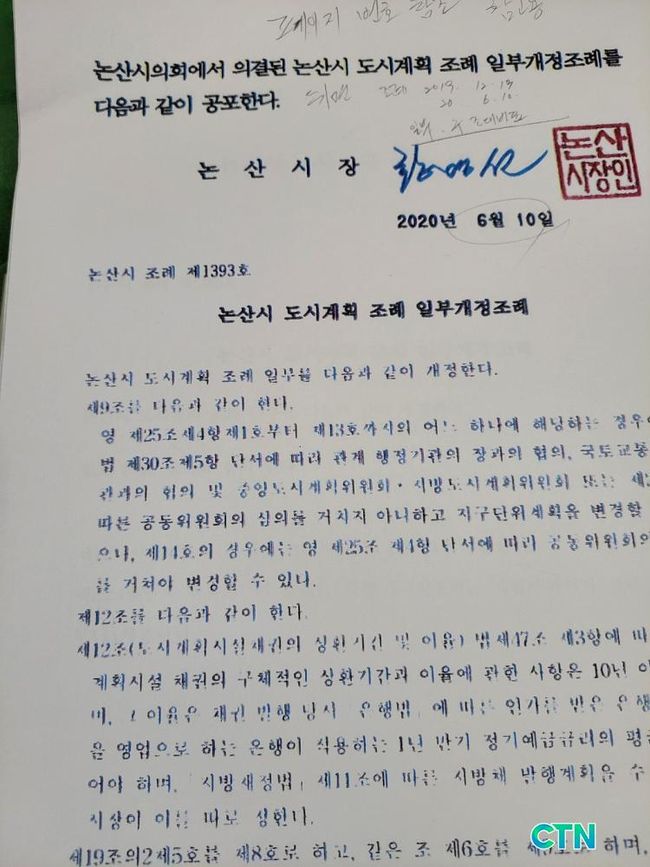 논산시의회에서 의결된 논산시 도시계획 조례 일부개정조례를
다음과 같이 공포한다.
2019. 12. 13
20 6. 10.
논 산 시 장
논산
시장인
2020년 6월 10일
논산시 조례 제1393호
논산시 도시계획 조례 일부개정조례
논산시 도시계획 조례 일부를 다음과 같이 개정한다.
제9조를 다음과 같이 한다.
영 제25조제4항제1호부터 제13호까지의 어느 하나에 해당하는 경우에
법 제30조제5항 단서에 따라 관계 행정기관의 장과의 협의, 국토교통
관과의 협의 및 중앙도시계획위원회·지방도시계획위원회 또는 제
따른 공동위원회의 심의를 거치지 아니하고 지구단위계획을 변경할
으나, 제14호의 경우에는 영 제25조 제4항 단서에 따라 공동위원회의
를 거쳐야 변경할 수 있다.
제12조를 다음과 같이 한다.
제12조(도시계획시설채권의 상환기간 및 이율) 법제47조 제3항에 따
계획시설 채권의 구체적인 상환기간과 이율에 관한 사항은 10년 이
며, 그 이율은 채권 발행 당시 「은행법」에 따른 인가를 받은 은행
을 영업으로 하는 은행이 적용하는 1년 만기 정기예금금리의 평균
어야 하며, 「지방재정법」 제11조에 따를 지방채 발행계획을 수
시장이 이를 따로 정한다.
제19조의2제5호를 제8호로 하고, 같은 조 제6호를 하며,
CTN